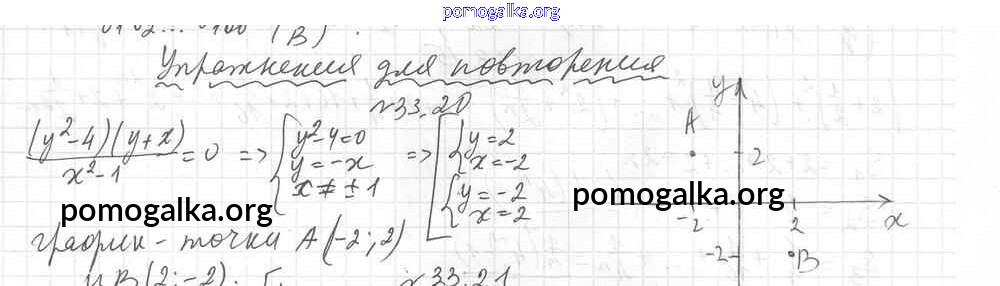 pomogalka.org
(В).
Упражнения для повторения
№33.20
(y²-4)(y+x)/x²-1 = 0 => { y²-4=0 y=-x x≠±1 => [ { y=2 x=-2 { y=-2 x=2
pomogalka.org
pomogalka.org
график - точки A(-2;2)
и B(2;-2).
№33.21
y
A
2
-2
2
x
-2
B